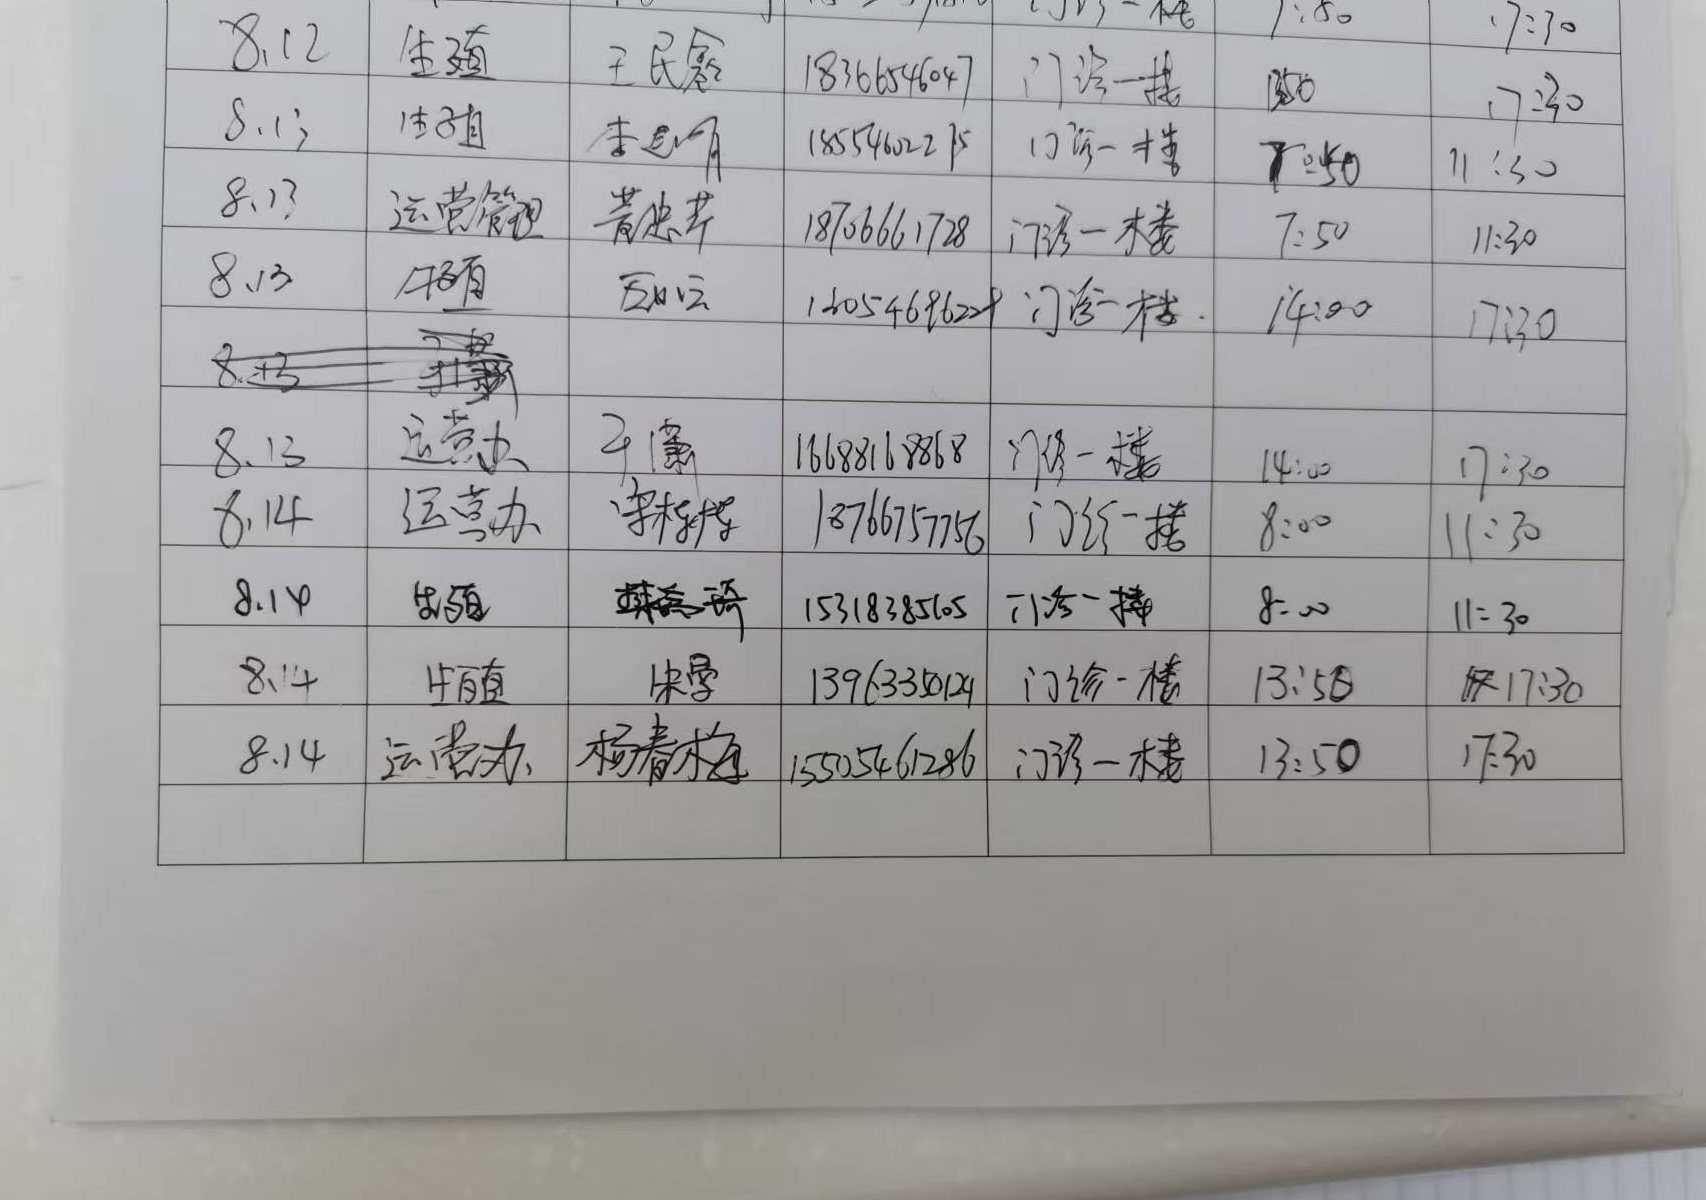 门诊一楼 7:50 17:30
8.12 生殖 王民 18366546047 门诊一楼 17:30
8.13 生殖 李 门诊一楼 7:50 11:30
8.13 运营管理 黄忠芹 18706661728 门诊一楼 7:50 11:30
8.13 生殖 门诊一楼. 14:00 17:30
8.13
8.13 运营办 于潇 16688168868 门诊一楼 14:00 17:30
8.14 运营办 18766757756 门诊一楼 8:00 11:30
8.14 生殖 15318385605 门诊一楼 8:00 11:30
8.14 生殖 13963350124 门诊一楼 13:50 17:30
8.14 运营办 杨春梅 15505461286 门诊一楼 13:50 17:30